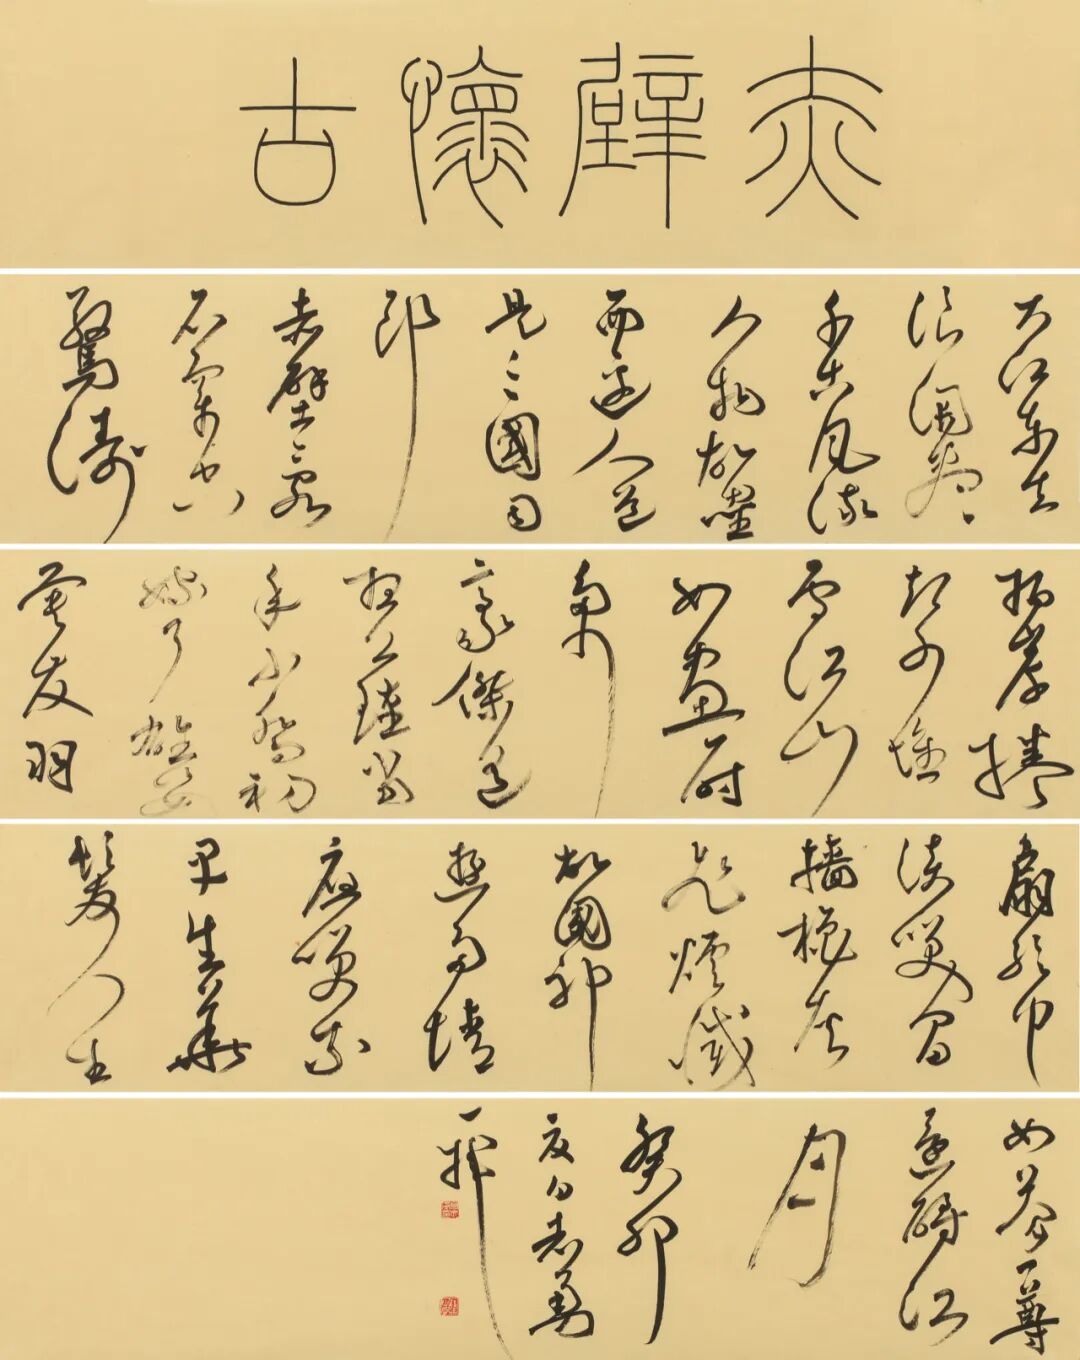 赤壁懷古
大江東去
浪淘盡
千古風流
人物故壘
西邊人道
是三國周
郎
赤壁亂
石穿空
驚濤
拍岸捲
起千堆
雪江山
如畫一時
多少
豪傑遙
想公瑾當
年小喬初
嫁了雄姿
英發羽
扇綸巾
談笑間
檣櫓灰
飛煙滅
故國神
遊多情
應笑我
早生華
髮人生
如夢一尊
還酹江
月
癸卯
夏日志勇
一揮